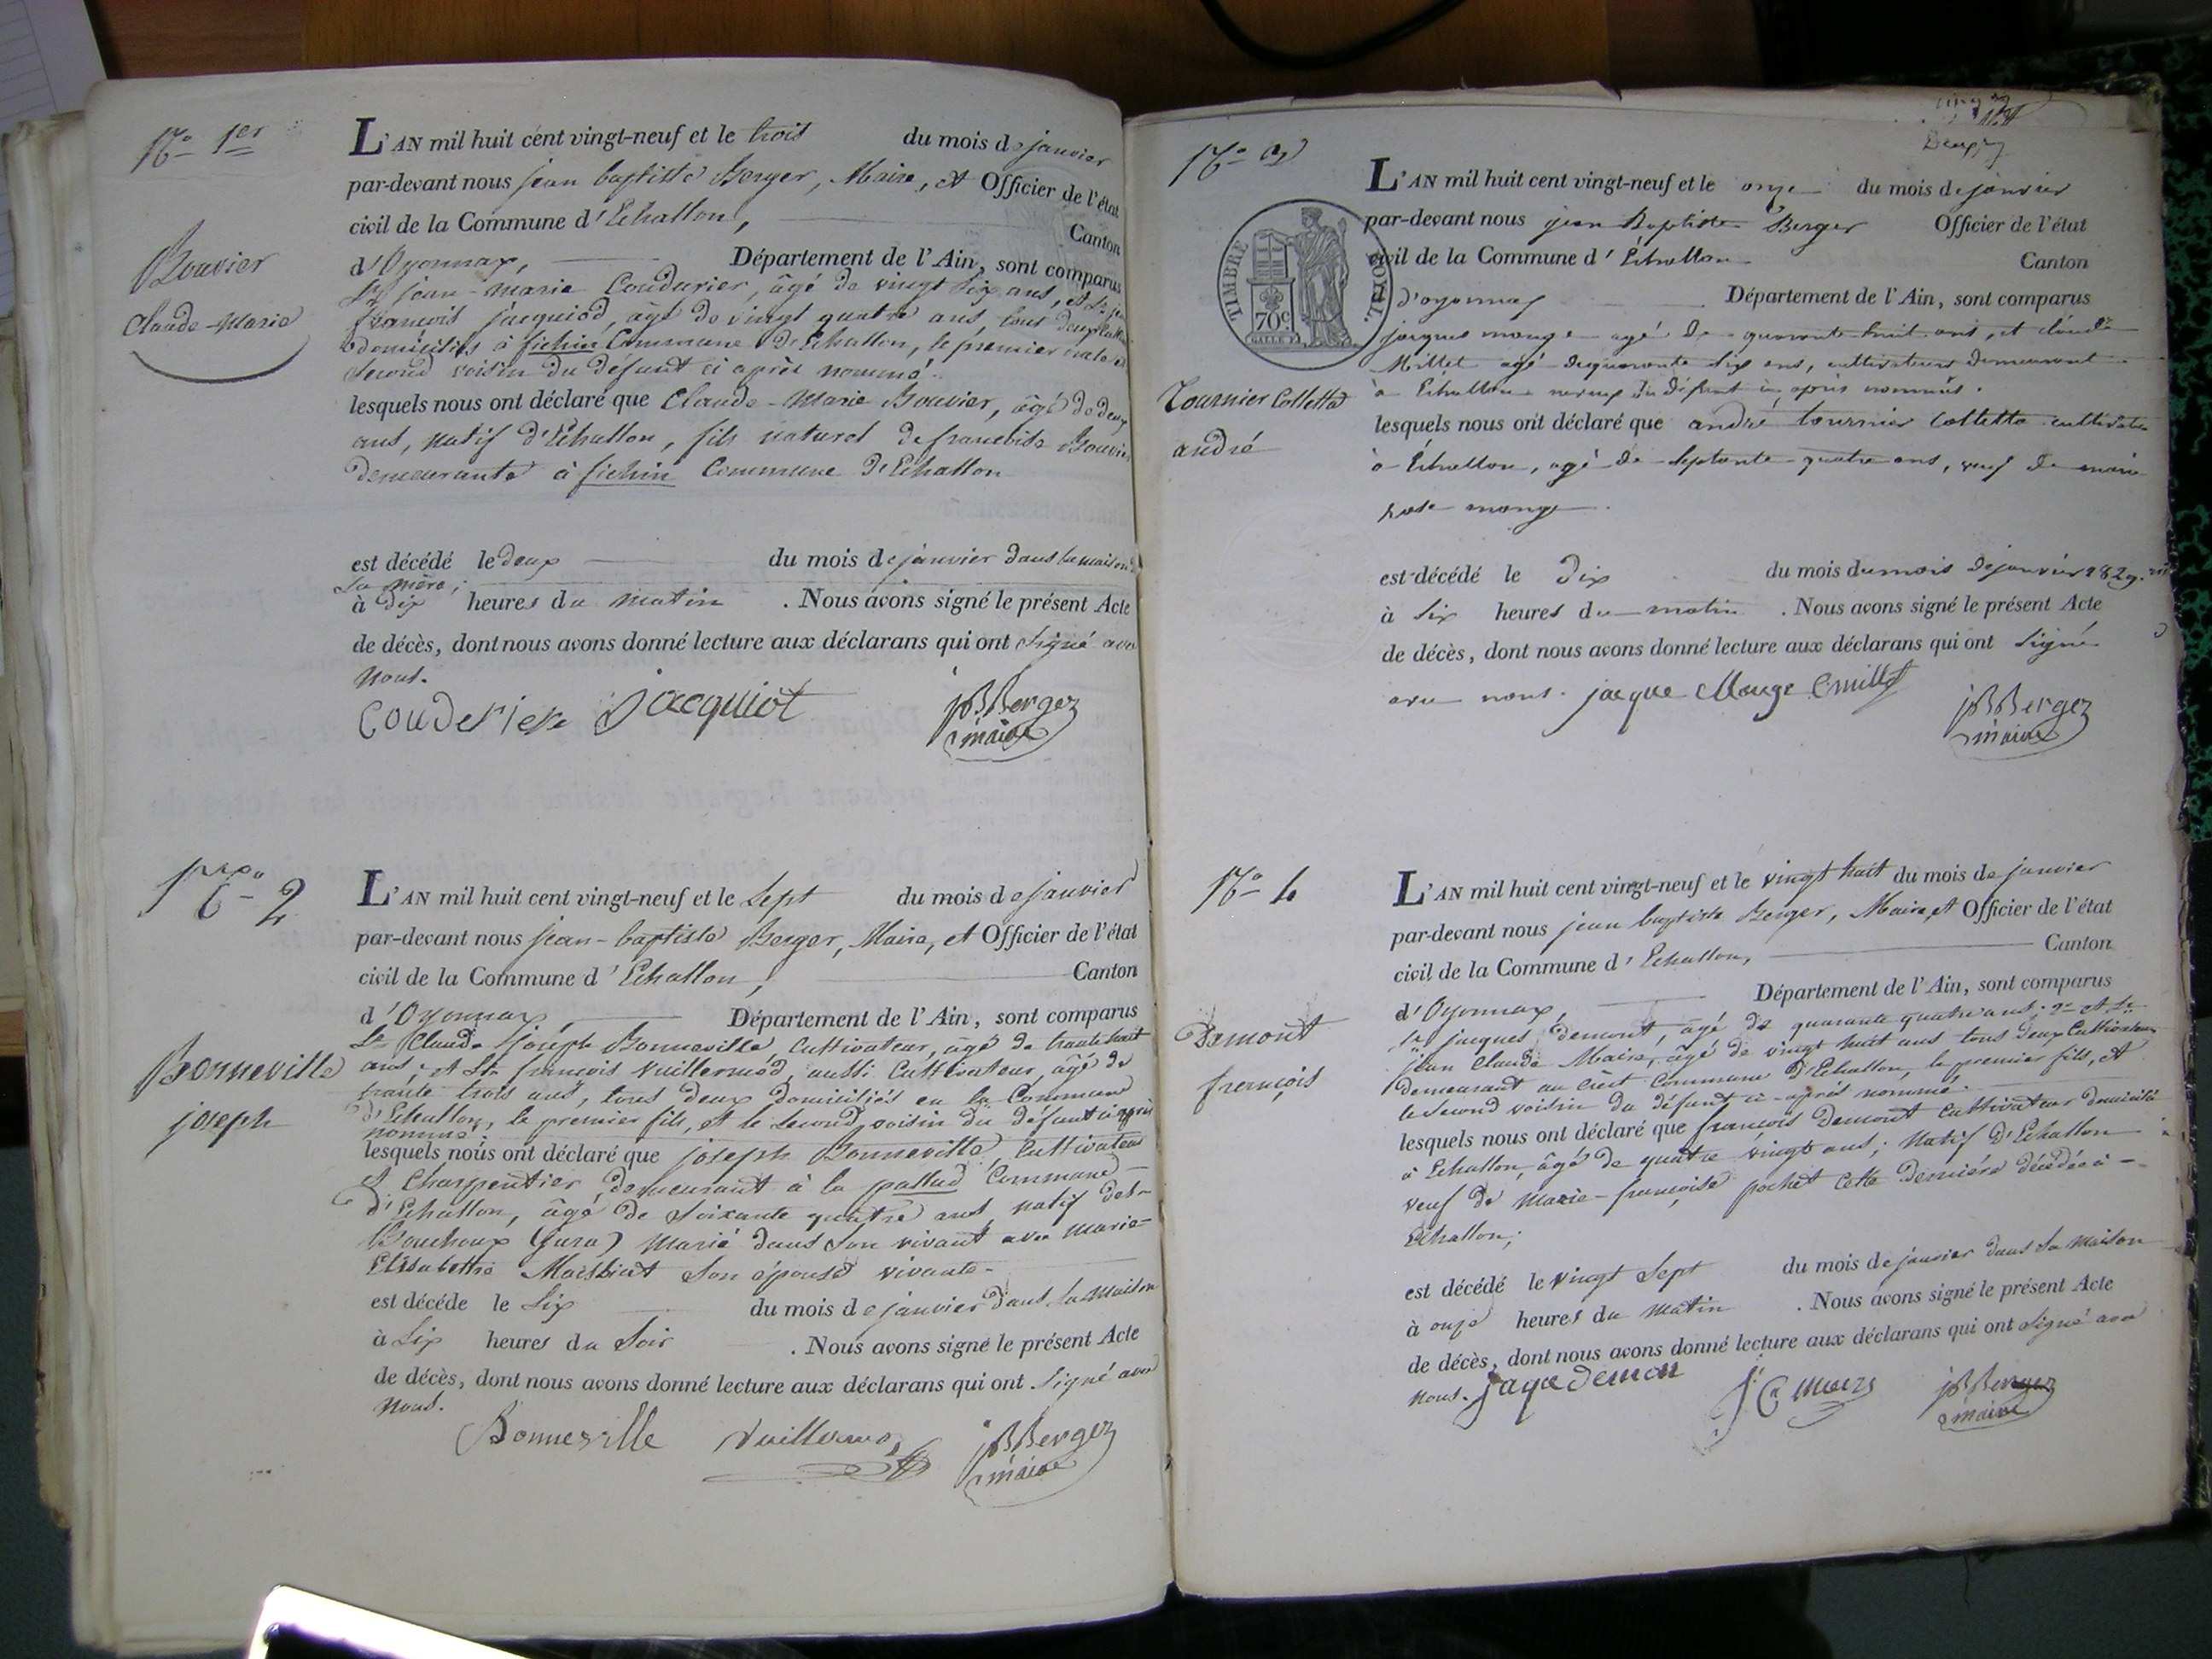 N.o 1er
Bouvier
Claude-Marie
L'AN mil huit cent vingt-neuf et le trois du mois de janvier
par-devant nous jean baptiste Berger, Maire, et Officier de l'état
civil de la Commune d'Echallon, Canton
d'Oyonnax, Département de l'Ain, sont comparus
Sr jean-marie Coudurier, âgé de vingt six ans, et Sr
françois jacquiod, âgé de vingt quatre ans, tous deux
domiciliés à fichin Commune d'Echallon, le premier et le
second voisin du défunt ci après nommé.
lesquels nous ont déclaré que Claude-Marie Bouvier, âgé de deux
ans, natif d'Echallon, fils naturel de Bouvier
demeurante à fichin Commune d'Echallon
est décédé le deux du mois de janvier dans la maison de
sa mère;
à dix heures du matin . Nous avons signé le présent Acte
de décès, dont nous avons donné lecture aux déclarans qui ont signé avec
nous.
Couderier jacquiot jBBerger
maire
N.o 2
Bonneville
joseph
L'AN mil huit cent vingt-neuf et le Sept du mois de janvier
par-devant nous jean-baptiste Berger, Maire, et Officier de l'état
civil de la Commune d'Echallon, Canton
d'Oyonnax Département de l'Ain, sont comparus
Sr Claude joseph Bonneville Cultivateur, âgé de trente huit
ans, et Sr françois Vuillermod, aussi Cultivateur, âgé de
trente trois ans, tous deux domiciliés en la Commune
d'Echallon, le premier fils, et le second voisin du défunt ci après
nommé.
lesquels nous ont déclaré que joseph Bonneville, Cultivateur
et Charpentier demeurant à la pallud Commune
d'Echallon, âgé de soixante quatre ans natif des
Bouchoux (Jura) marié dans son vivant avec Marie-
Elisabethe son épouse vivante.
est décédé le Six du mois de janvier dans sa maison
à Six heures du Soir . Nous avons signé le présent Acte
de décès, dont nous avons donné lecture aux déclarans qui ont Signé avec
nous.
Bonneville Vuillermo jBBerger
maire
N.o 3
TIMBRE ROYAL.
70c
Tournier Colletta
andré
L'AN mil huit cent vingt-neuf et le onze du mois de janvier
par-devant nous jean Baptiste Berger Officier de l'état
civil de la Commune d'Echallon Canton
d'oyonnax Département de l'Ain, sont comparus
jacques monge agé de quarante huit ans, et claude
Millet agé de six ans, cultivateurs demeurant
à Echallon du défunt ci après nommés.
lesquels nous ont déclaré que andré tournier colletta cultivateur
à Echallon, agé de septante quatre ans, veuf de marie
rose monge
est décédé le dix du mois du mois de janvier 1829.
à six heures du matin . Nous avons signé le présent Acte
de décès, dont nous avons donné lecture aux déclarans qui ont signé
avec nous. jacque Monge Cmillet jBBerger
maire
N.o 4
Demont
françois
L'AN mil huit cent vingt-neuf et le vingt huit du mois de janvier
par-devant nous jean baptiste Berger, Maire, et Officier de l'état
civil de la Commune d'Echallon, Canton
d'Oyonnax, Département de l'Ain, sont comparus
Sr jacques Demont, âgé de quarante quatre ans; et Sr
jean Claude Maire, âgé de vingt huit ans tous deux Cultivateurs
demeurant au Crêt Commune d'Echallon, le premier fils, et
le second voisin du défunt ci-après nommé.
lesquels nous ont déclaré que françois Demont Cultivateur domicilié
à Echallon, âgé de quatre vingt ans; natif d'Echallon
veuf de Marie-françoise pochet cette dernière décédée à
Echallon;
est décédé le vingt sept du mois de janvier dans sa maison
à onze heures du matin . Nous avons signé le présent Acte
de décès, dont nous avons donné lecture aux déclarans qui ont signé avec
nous. jaque demon jBBerger
maire